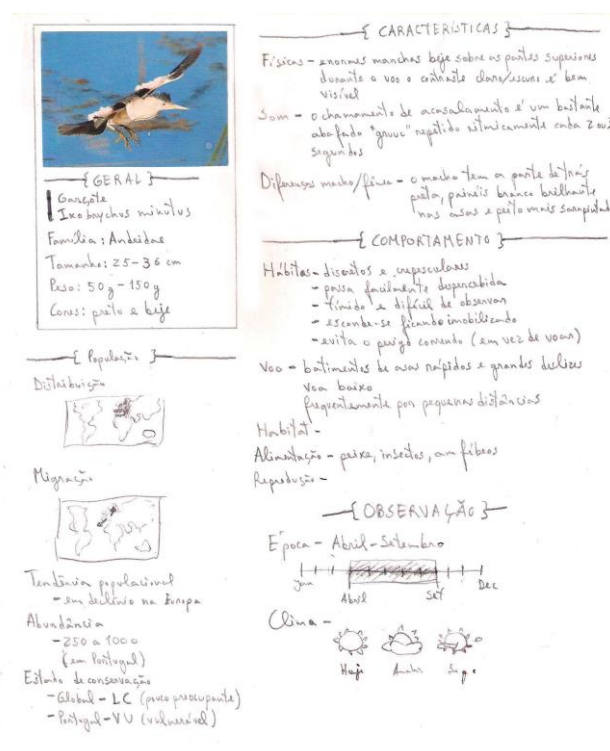 { GERAL }
Garçote
Ixobrychus minutus
Família: Ardeidae
Tamanho: 25-36 cm
Peso: 50g - 150g
Cores: preto e beje
{ População }
Distribuição
Migração
Tendência populacional
- em declínio na Europa
Abundância
- 250 a 1000
(em Portugal)
Estado de conservação
- Global - LC (pouco preocupante)
- Portugal - VU (vulnerável)
{ CARACTERÍSTICAS }
Físicas - enormes manchas beje sobre as partes superiores
durante o voo o contraste claro/escuro é bem
visível
Som - o chamamento de acasalamento é um bastante
abafado "gruuc" repetido ritmicamente cada 2 ou
segundos
Diferenças macho/fêmea - o macho tem a parte de trás
preta, painéis branco brilhante
nas asas e peito mais
{ COMPORTAMENTO }
Hábitos - discretos e crepusculares
- passa facilmente despercebida
- tímido e difícil de observar
- esconde-se ficando imobilizado
- evita o perigo correndo (em vez de voar)
Voo - batimentos de asas rápidos e grandes deslizes
voa baixo
frequentemente por pequenas distâncias
Habitat -
Alimentação - peixe, insectos, anfíbeos
Reprodução -
{ OBSERVAÇÃO }
Época - Abril - Setembro
Jan Abril Set Dez
Clima -
Hoje